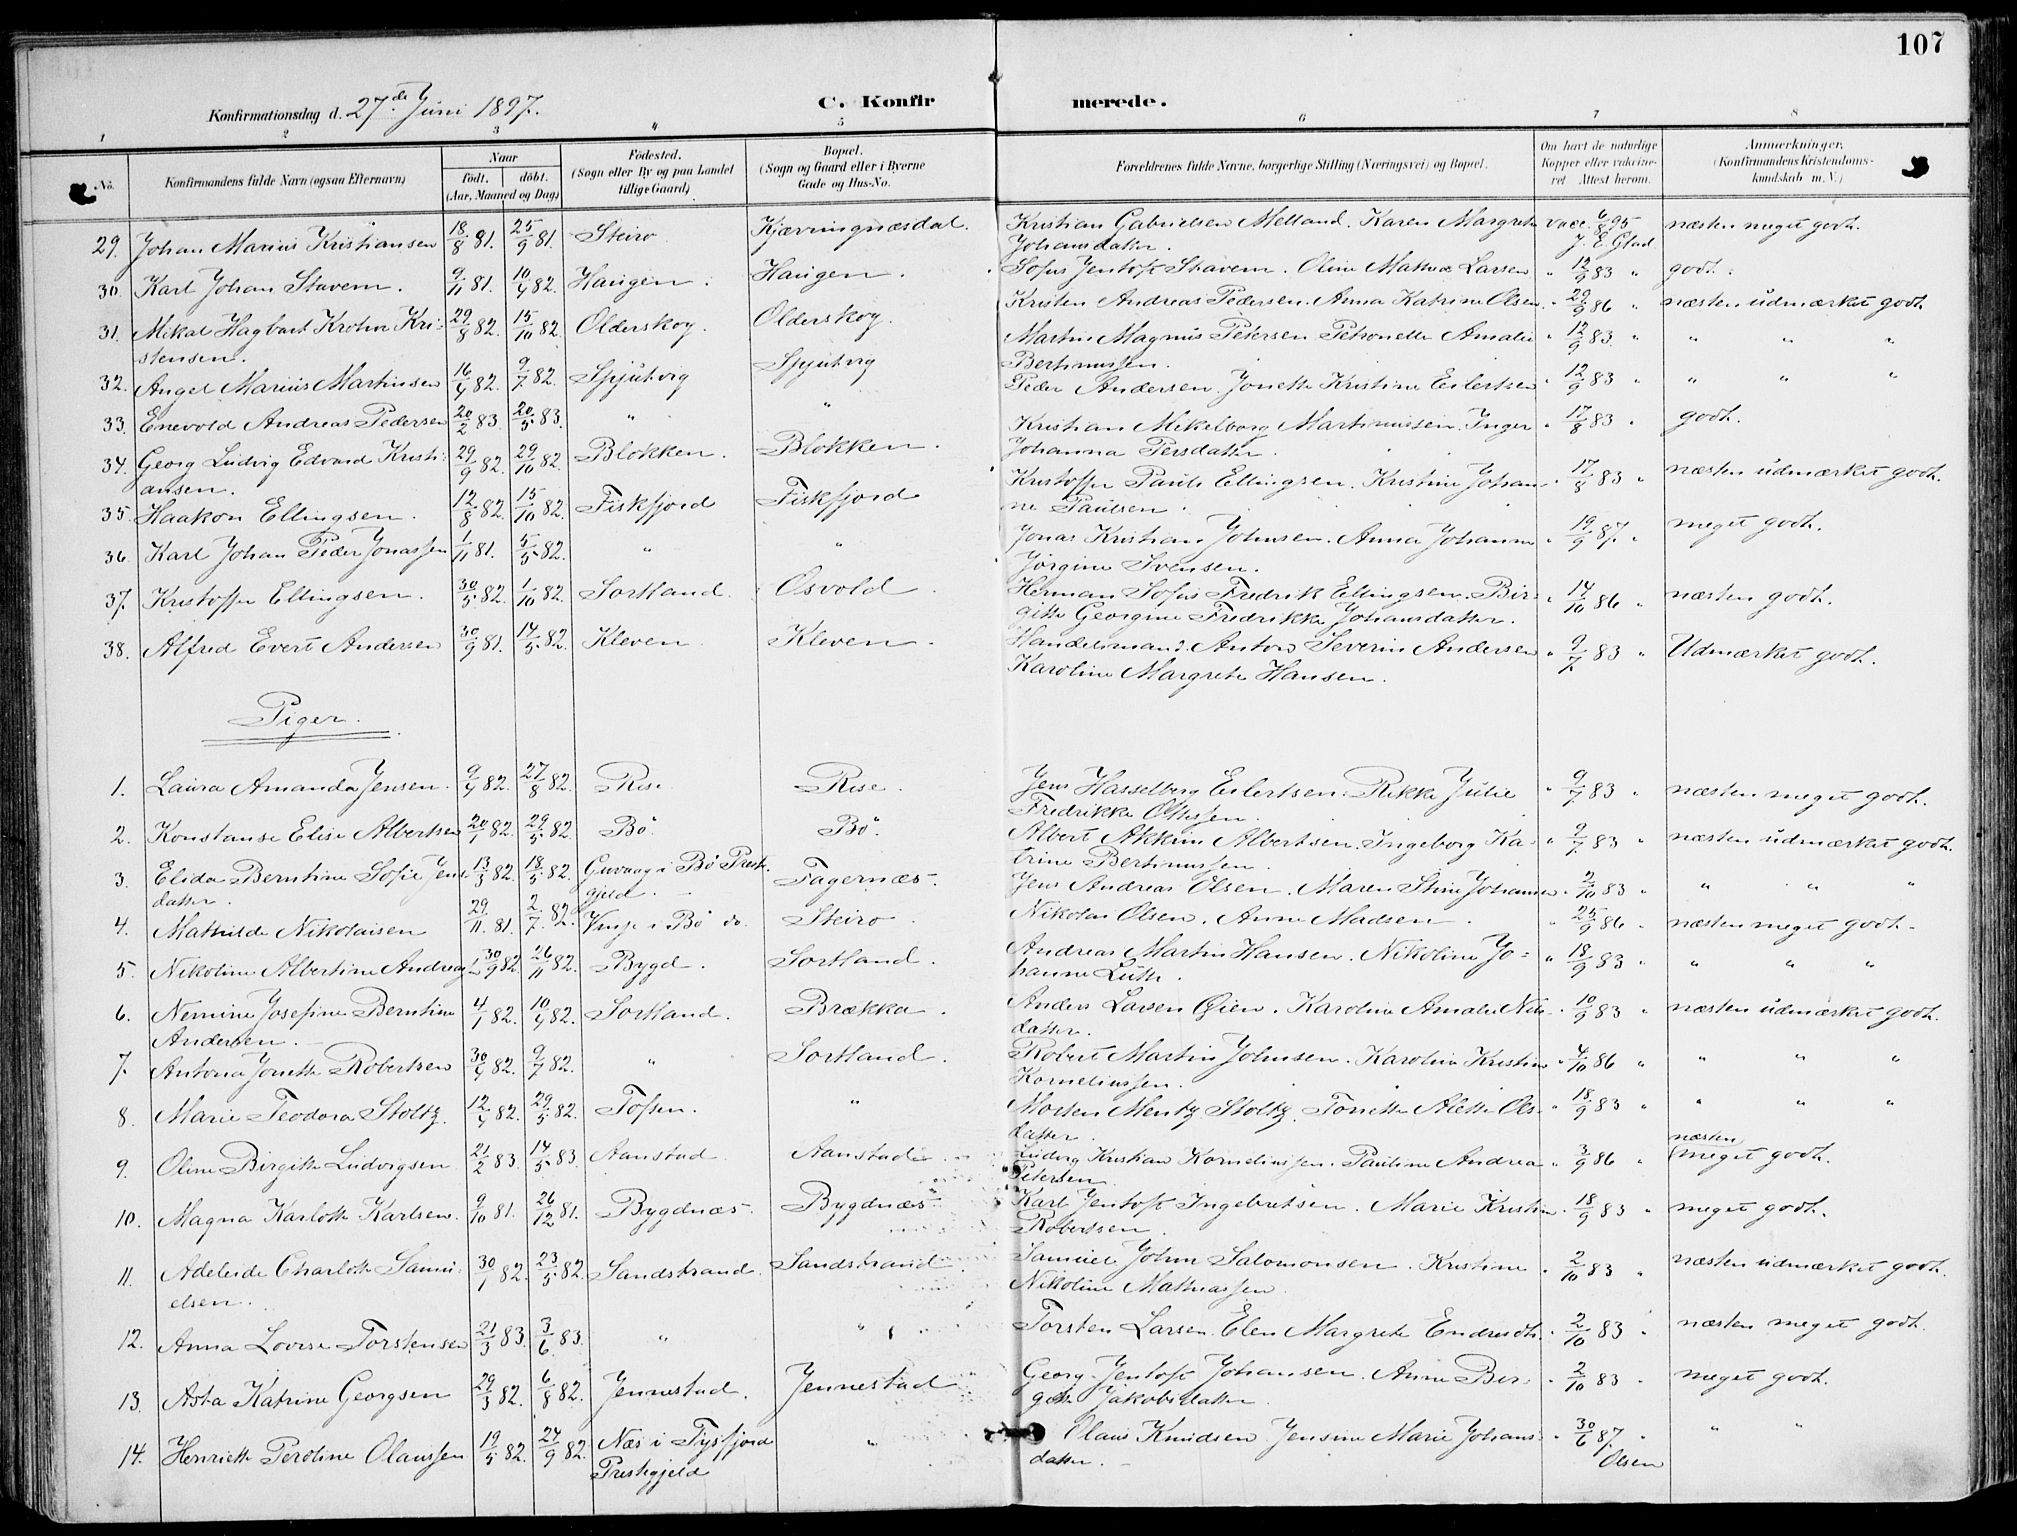 107
Konfirmationsdag d. 27de Juni 1897.
C. Konfirmerede.
1 2 3 4 5 6 7 8
No.
Konfirmandens fulde Navn (ogsaa Efternavn)
Naar
født. døbt.
(Aar, Maaned og Dag)
Fødested.
(Sogn eller By og paa Landet
tillige Gaard)
Bopæl.
(Sogn og Gaard eller i Byerne
Gade og Hus-No.
Forældrenes fulde Navne, borgerlige Stilling (Næringsvei) og Bopæl.
Om havt de naturlige
Kopper eller vaccineret
Attest herom.
Anmærkninger.
(Konfirmandens Kristendomskundskab
m. V.)
29. Johan Marius Kristiansen 18/8 81. 25/9 81. Steiro Kjærringnæsdal. Kristian Gabrielsen Melland. Karen Margrete Johansdatter. vacc. 6/8 95 J. E. Glad næsten meget godt.
30. Karl Johan Stavem. 9/11 81. 10/4 82. Haugen. Haugen. Sofus Jentoft Stavem. Oline Mathea Larsen " 12/9 83 " godt.
31. Mikal Hagbart Krohn Kristensen. 29/8 82. 15/10 82. Olderskog. Olderskog. Kristen Andreas Pedersen. Anna Katrine Olsen " 29/9 86 " næsten udmærket godt.
32. Angel Marius Martinsen 16/4 82. 9/7 82. Spjutvig Spjutvig Martin Magnus Petersen Petronelle Amalie Bertinussen. " 12/9 83. " " " "
33. Enevold Andreas Pedersen 20/2 83. 20/5 83. " " Peder Andersen. Jonette Kristine Eilertsen " 12/9 83 " " " "
34. Georg Ludvig Edvard Kristiansen. 29/9 82. 29/10 82. Blokken. Blokken. Kristian Mikelborg Martinussen. Inger Johanna Persdatter. " 17/8 83 " godt.
35. Haakon Ellingsen. 12/8 82. 15/10 82. Fiskfjord Fiskfjord Kristoffer Pauls Ellingsen. Kristine Johanne Paulsen. " 17/8 83 " næsten udmærket godt.
36. Karl Johan Peder Jonassen 1/11 81. 5/5 82. " " Jonas Kristian Johnsen. Anna Johanna Jörgine Svensen. " 19/9 87. " meget godt.
37. Kristoffer Ellingsen. 30/5 82. 1/10 82. Sortland. Osvold. Herman Sofus Fredrik Ellingsen. Birgitte Georgine Fredrikke Johansdatter. " 14/10 86 " næsten godt.
38. Alfred Evert Andersen 30/9 81. 14/5 82. Kleven. Kleven. Handelsmand Anton Severin Andersen Karoline Margrete Hansen. " 9/7 83 " Udmærket godt.
Piger.
1. Laura Amanda Jensen. 9/4 82. 27/8 82. Rise Rise. Jens Hasselberg Eilertsen. Rikke Julie Fredrikke Ottesen. " 9/7 83 " næsten meget godt.
2. Konstanse Elise Albertsen 20/1 82. 29/5 82. Bö. Bö. Albert Akkim Albertsen. Ingeborg Katrine Bertinussen. " 9/7 83 " næsten udmærket godt.
3. Elida Berntine Sofie Jensdatter. 13/3 82. 18/5 82. Guvaag i Bö Prestegjeld Fagernæs. Jens Andreas Olsen. Maren Stine Johansen " 2/10 83 " " " "
4. Mathilde Nikolaisen 29/11 81. 2/7 82. i Bö do. Steiro. Nikolai Olsen. Anne Madsen. " 25/9 86 " næsten meget godt.
5. Nikoline Albertine Andreasen 30/9 82. 26/11 82. Bygd. Sortland. Andreas Martin Hansen. Nikoline Johanne Lütte. " 18/9 83 " " " "
6. Nemine Josefine Berntine Andersen. 4/1 82. 10/4 82. Sortland. Brækka. Anders Larsen Øien. Karoline Amalie Nilsdatter. " 10/9 83 " næsten udmærket godt.
7. Antona Jonette Robertsen 30/4 82. 9/7 82. " Sortland. Robert Martin Johnsen. Karolina Kristine Korneliussen. " 4/10 86 " " " "
8. Marie Teodora Stoltz. 12/4 82. 29/5 82. Tofsen. " Morten Mentz Stoltz. Tonette Alette Olsdatter. " 18/9 83 " " " "
9. Oline Birgitte Ludvigsen 21/2 83. 14/5 83. Aanstad. Aanstad. Ludvig Kristian Korneliussen. Pauline Andrea Petersen. " 3/9 86 " næsten meget godt.
10. Magna Karlotte Karlsen. 9/10 81. 26/12 81. Bygdnæs. Bygdnæs. Karl Jentoft Ingebretsen. Marie Kristine Robertsen. " 18/9 83 " meget godt.
11. Adeleide Charlotte Samuelsen. 30/1 82. 23/5 82. Sandstrand. Sandstrand. Samuel Johan Salomonsen. Kristine Nikoline Mathiassen. " 2/10 83 " næsten udmærket godt.
12. Anna Lovise Torstensen 21/3 83. 3/6 83. " " Torsten Larsen. Elen Margrete Endresdtr. " 2/10 83 " næsten meget godt.
13. Asta Katrine Georgsen 29/3 82. 6/8 82. Jennestad. Jennestad Georg Jentoft Johansen. Anne Birgitte Jakobsdatter. " 2/10 83 " meget godt.
14. Henriette Peroline Olaussen 19/5 82. 24/9 82. Næs i Tysfjord Prestegjeld " Olaus Knudsen Jensine Marie Johansdatter. " 30/6 87. " Olsen " "